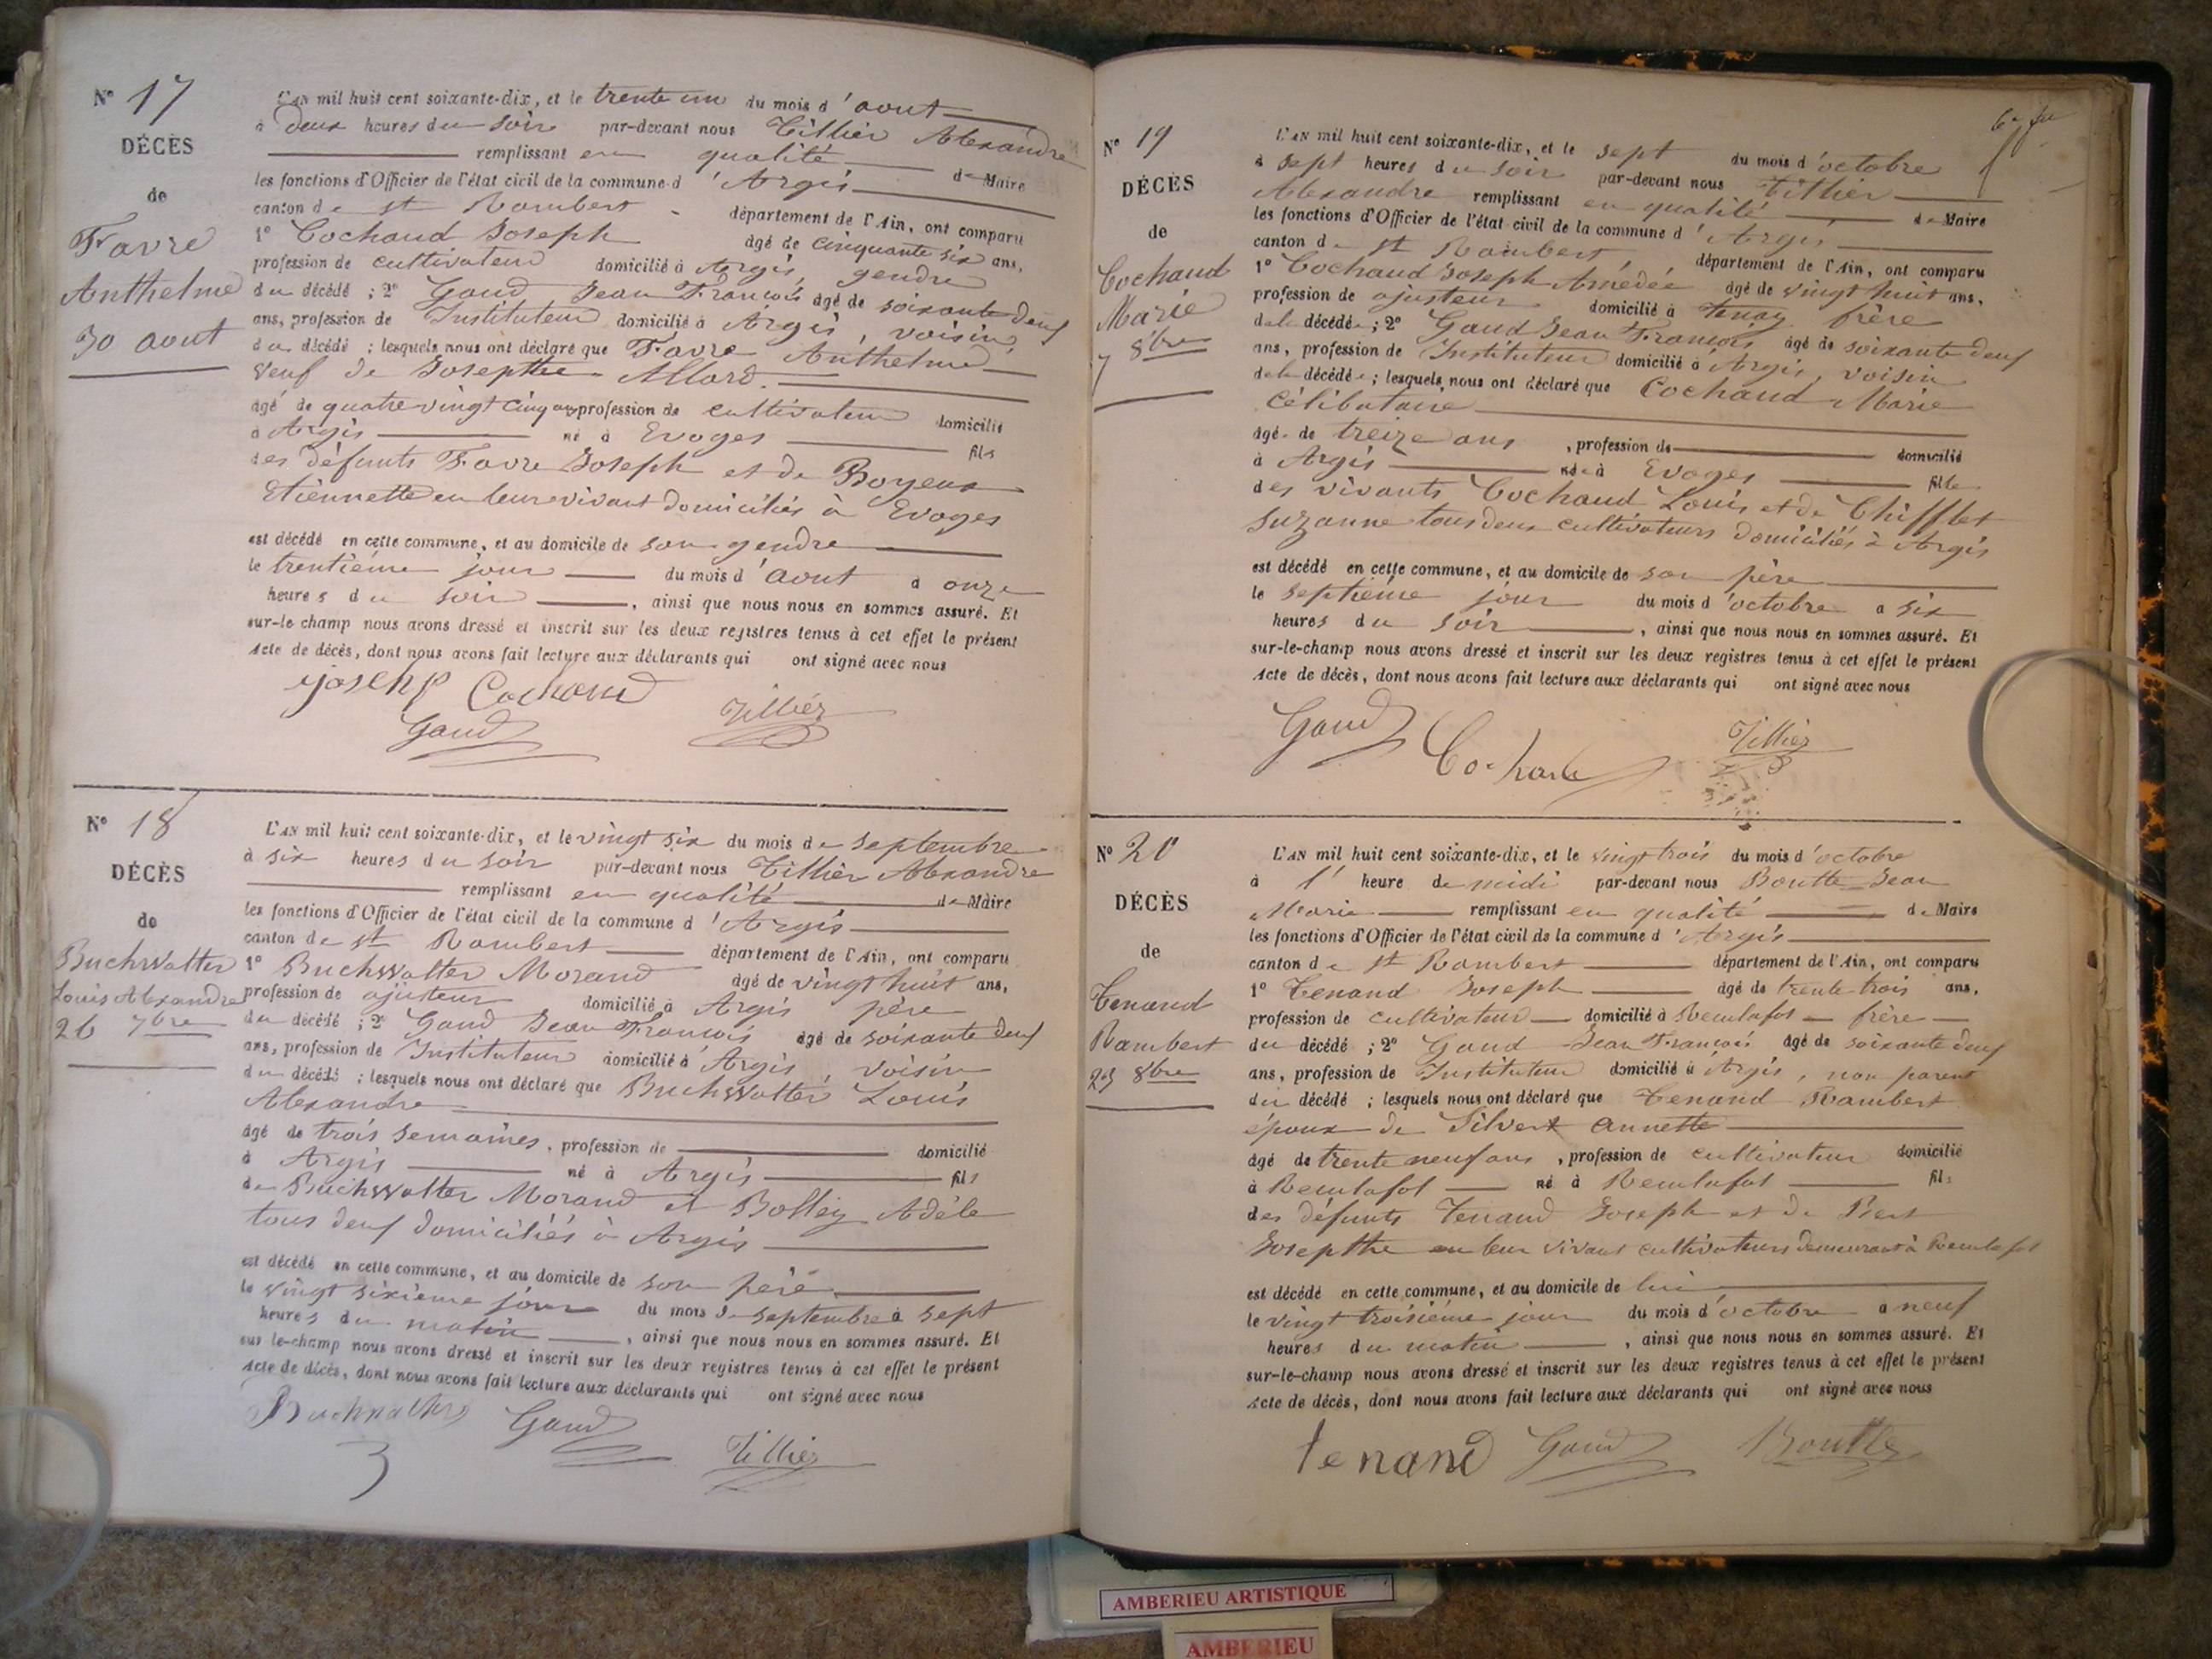 N° 17
DÉCÈS
de
Favre
Anthelme
30 aout
L'AN mil huit cent soixante-dix, et le trente un du mois d'aout
à deux heures du soir par-devant nous Tillier Alexandre
remplissant en qualité de Maire
les fonctions d'Officier de l'état civil de la commune d'Argis
canton de st Rambert département de l'Ain, ont comparu
1° Cochaud Joseph âgé de cinquante six ans,
profession de cultivateur domicilié à Argis, gendre
du décédé ; 2° Gaud Jean François âgé de soixante deux
ans, profession de Instituteur domicilié à Argis, voisin
du décédé ; lesquels nous ont déclaré que Favre Anthelme
veuf de Josephte Allard
âgé de quatre vingt cinq ans profession de cultivateur domicilié
à Argis né à Evoges fils
des défunts Favre Joseph et de Boyeux
Etiennette en leur vivant domiciliés à Evoges
est décédé en cette commune, et au domicile de son gendre
le trentième jour du mois d'aout à onze
heures du soir, ainsi que nous nous en sommes assuré. Et
sur-le champ nous avons dressé et inscrit sur les deux registres tenus à cet effet le présent
Acte de décès, dont nous avons fait lecture aux déclarants qui ont signé avec nous
joseph Cochaud
Gaud Tillier
N° 18
DÉCÈS
de
Buchwalter
Louis Alexandre
26 7bre
L'AN mil huit cent soixante-dix, et le vingt six du mois de septembre
à six heures du soir par-devant nous Tillier Alexandre
remplissant en qualité de Maire
les fonctions d'Officier de l'état civil de la commune d'Argis
canton de st Rambert département de l'Ain, ont comparu
1° Buchwalter Morand âgé de vingt huit ans,
profession de ajusteur domicilié à Argis père
du décédé ; 2° Gaud Jean François âgé de soixante deux
ans, profession de Instituteur domicilié à Argis, voisin
du décédé ; lesquels nous ont déclaré que Buchwalter Louis
Alexandre
âgé de trois semaines, profession de domicilié
à Argis né à Argis fils
de Buchwalter Morand et Bolley Adèle
tous deux domiciliés à Argis
est décédé en cette commune, et au domicile de son père
le vingt sixième jour du mois de septembre à sept
heures du matin, ainsi que nous nous en sommes assuré. Et
sur le-champ nous avons dressé et inscrit sur les deux registres tenus à cet effet le présent
Acte de décès, dont nous avons fait lecture aux déclarants qui ont signé avec nous
Buchwalther Gaud
Tillier
N° 19
DÉCÈS
de
Cochaud
Marie
7 8bre
L'AN mil huit cent soixante-dix, et le sept du mois d'octobre
à sept heures du soir par-devant nous Tillier
Alexandre remplissant en qualité de Maire
les fonctions d'Officier de l'état civil de la commune d'Argis
canton de st Rambert, département de l'Ain, ont comparu
1° Cochaud Joseph Amédée âgé de vingt huit ans,
profession de ajusteur domicilié à Tenay frère
de la décédée ; 2° Gaud Jean François âgé de soixante deux
ans, profession de Instituteur domicilié à Argis, voisin
de la décédée ; lesquels nous ont déclaré que Cochaud Marie
célibataire
âgée de treize ans, profession de domicilié
à Argis née à Evoges fille
des vivants Cochaud Louis et de Chifflet
Suzanne tous deux cultivateurs domiciliés à Argis
est décédé en cette commune, et au domicile de son père
le septième jour du mois d'octobre à six
heures du soir, ainsi que nous nous en sommes assuré. Et
sur-le-champ nous avons dressé et inscrit sur les deux registres tenus à cet effet le présent
Acte de décès, dont nous avons fait lecture aux déclarants qui ont signé avec nous
Gaud Tillier
N° 20
DÉCÈS
de
Tenand
Rambert
23 8bre
L'AN mil huit cent soixante-dix, et le vingt trois du mois d'octobre
à l' heure de midi par-devant nous Boutte Jean
Marie remplissant en qualité de Maire
les fonctions d'Officier de l'état civil de la commune d'Argis
canton de st Rambert département de l'Ain, ont comparu
1° Tenand Joseph âgé de trente trois ans,
profession de cultivateur domicilié à Reculafol frère
du décédé ; 2° Gaud Jean François âgé de soixante deux
ans, profession de Instituteur domicilié à Argis, non parent
du décédé ; lesquels nous ont déclaré que Tenand Rambert
époux de Silvert annette
âgé de trente neuf ans, profession de cultivateur domicilié
à Reculafol né à Reculafol fils
des défunts Tenand Joseph et de
Josephte en leur vivant cultivateurs demeurant à Reculafol
est décédé en cette commune, et au domicile de lui
le vingt troisième jour du mois d'octobre à neuf
heures du matin, ainsi que nous nous en sommes assuré. Et
sur-le-champ nous avons dressé et inscrit sur les deux registres tenus à cet effet le présent
Acte de décès, dont nous avons fait lecture aux déclarants qui ont signé avec nous
tenand Gaud Boutte
AMBERIEU ARTISTIQUE
AMBERIEU